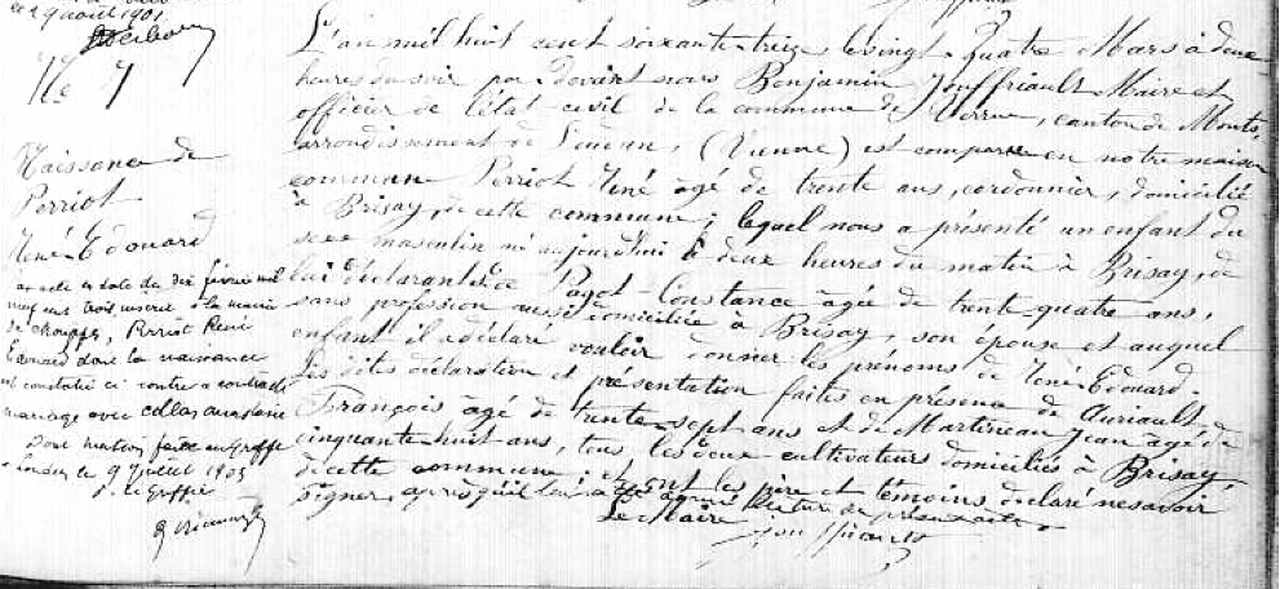 le 29 août 1901
No 7
Naissance de
Perriot
René Édouard
acte en date du dix février mil
neuf cent trois inscrit à la mairie
de Chouppes, Perriot René
Édouard dont la naissance
est constatée ci contre a contracté
mariage avec Collas
Dont mention faite au greffe
Loudun le 9 juillet 1903
le Greffier
L'an mil huit cent soixante-treize, le vingt-quatre Mars à deux
heures du soir par devant nous Benjamin Jouffriault Maire et
officier de l'état-civil de la commune de Verrue, canton de Monts,
arrondissement de Loudun, (Vienne) est comparu en notre maison
commune Perriot René âgé de trente ans, cordonnier, domicilié
à Brisay, de cette commune; lequel nous a présenté un enfant du
sexe masculin né aujourd'hui à deux heures du matin à Brisay, de
lui déclarant et de Pagot Constance âgée de trente-quatre ans,
sans profession aussi domiciliée à Brisay, son épouse et auquel
enfant il a déclaré vouloir donner les prénoms de René-Édouard.
Les dites déclaration et présentation faites en présence de Auriault
François âgé de trente-sept ans et de Martineau Jean âgé de
cinquante-huit ans, tous les deux cultivateurs domiciliés à Brisay,
de cette commune; et ont les père et témoins déclaré ne savoir
signer, après qu'il leur a été donné lecture du présent acte.
Le Maire
Jouffriault